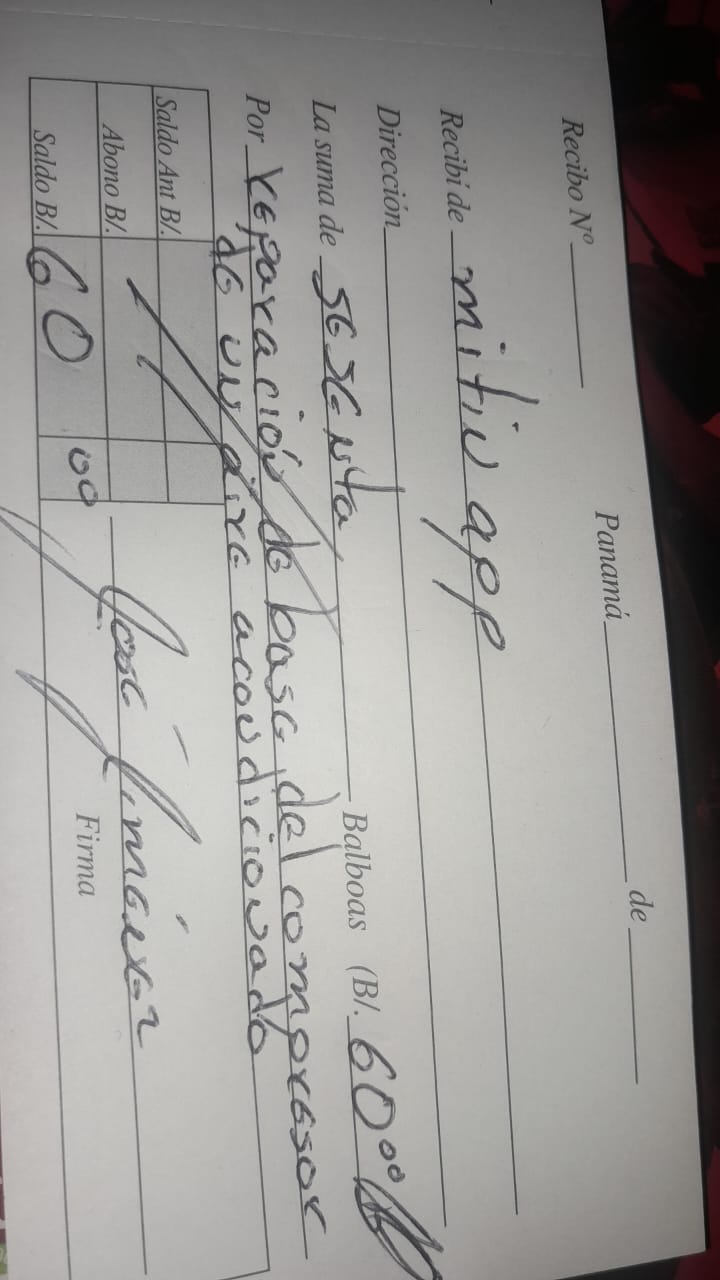 Recibo Nº
Panamá de
Recibí de mitiv app
Dirección
La suma de sesenta Balboas (B/. 60 00
Por reparación de base del compresor
de un aire acondicionado
Saldo Ant B/.
Abono B/.
Saldo B/. 60 00
José Jiménez
Firma